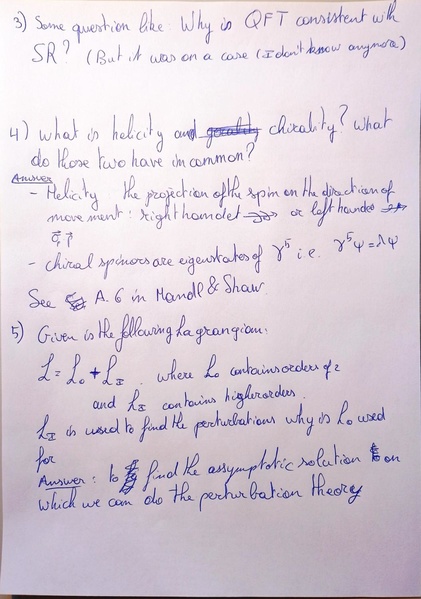 3) Some question like: Why is QFT consistent with
SR? (But it was on a case (I don't know anymore)
4) what is helicity and chirality? What
do those two have in common?
Answer
- Helicity the projection of the spin on the direction of
movement: right handet or left handed
σ⃗, p⃗
- chiral spinors are eigenstates of γ⁵ i.e. γ⁵ψ=λψ
See A.6 in Mandl & Shaw
5) Given is the following Lagrangian:
L = L₀ + L_I. where L₀ contains orders of 2
and L_I contains higher orders.
L_I is used to find the perturbations why is L₀ used
for
Answer: to find the assymptotic solution on
which we can do the perturbation theory